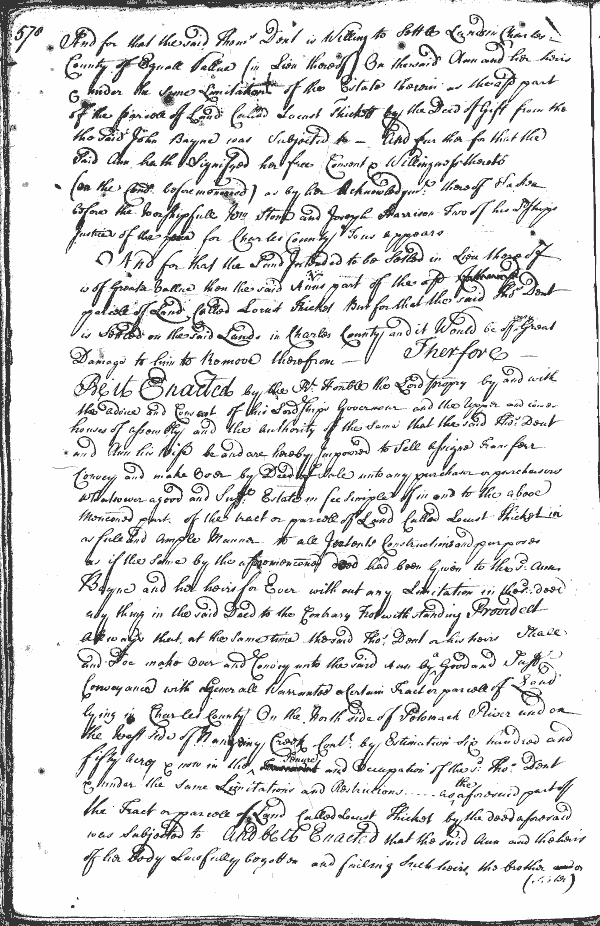 570
And for that the said Thoms Dent is Willing to Settle Land in Charles
County of Equall Vallue (in Lieu thereof) On the said Ann and her heirs
& under the same Limitations of the Estate therein as the afd part
of the parcele of Land Called Locust Thickett by the Deed of Gift from the
the said John Bayne was Subjected to – And further for that the
Said Ann hath Signifyed her free Consent & Willingness thereto
(on the Cond. before menconed) as by her Acknowledgmt thereof taken
before the Worshipfull Wm Stone and Joseph Harrison Two of his Lordships
Justices of the peace for Charles County To us appears
And for that the Land Intended to be Setled in Lieu thereof
is of Greater Vallue then the said Ann's part of the afd
parcele of Land Called Locust Thicket But for that the said Thos Dent
is Setled on the said Lands in Charles County and it Would be of Great
Damage to him to Remove therefrom — Therfore —
Be it Enacted by the Rt Honble the Lord propry by and with
the advice and Consent of his Lordships Governour and the upper and lower
houses of assembly and the Authority of the same that the said Thos Dent
and Ann his Wife be and are hereby Impowred to Sell assigne Transferr
Convey and make Over by Deed of Sale unto any purchaser or purchasers
whatsoever a good and Sufft Estate in fee simple of in and to the above
Menconed part of the tract or parcele of Land Called Locust Thicket in
as full and ample Manner to all Jntents Constructions and purposes
as if the same by the aforemenconed deed had been Given to the sd Ann
Bayne and her heirs for Ever with out any Limitation in the sd deed
any thing in the said Deed to the Contrary Notwithstanding Provided
allways that at the same time the said Thos Dent or his heirs Shall
and Doe make over and Convey unto the said Ann by a Good and Sufft
Conveyance with Generall Warranted a Certain Tract or parcele of Land
lying in Charles County On the North side of Potomack River and on
the West side of Nanjemy Creek Contg by Estimation Six hundred and
fifty acres & now in the Tenure and Occupation of the sd Thos Dent
& under the same Limitations and Restrictions ..... as the aforesaid part of
the Tract or parcele of Land Called Locust Thicket by the deed aforesaid
was Subjected to And be it Enacted that the said Ann and the heirs
of her Body Lawfully begotten and failing Such heirs, the brother or
(Sister)